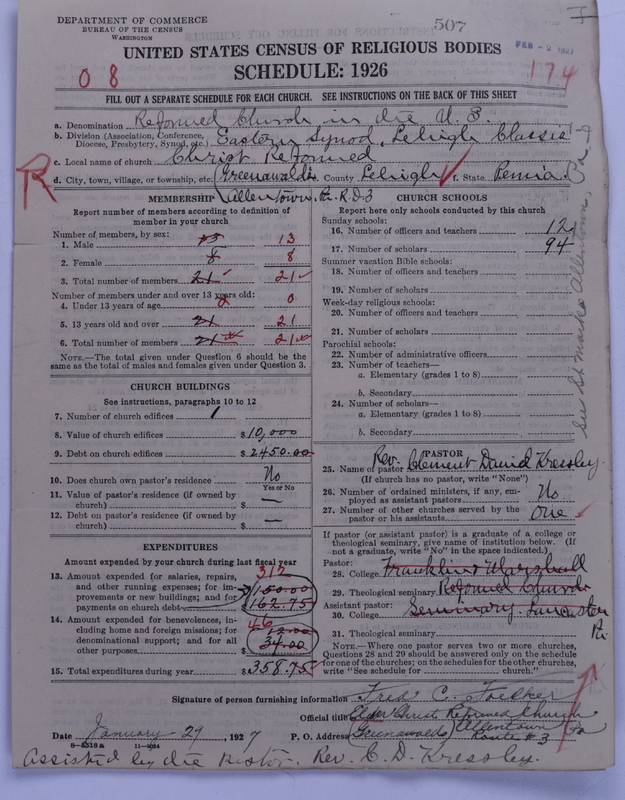 DEPARTMENT OF COMMERCE
BUREAU OF THE CENSUS
WASHINGTON
507
FEB -2 1927
UNITED STATES CENSUS OF RELIGIOUS BODIES
SCHEDULE: 1926
0 8
174
FILL OUT A SEPARATE SCHEDULE FOR EACH CHURCH. SEE INSTRUCTIONS ON THE BACK OF THIS SHEET
a. Denomination Reformed Church in the U.S.
b. Division (Association, Conference, Diocese, Presbytery, Synod, etc.) Eastern Synod, Lehigh Classis
c. Local name of church Christ Reformed
d. City, town, village, or township, etc. (Greenawalds County Lehigh f. State Penna.
R
Allentown, Pa. R.D. 3
MEMBERSHIP
Report number of members according to definition of member in your church
Number of members, by sex:
1. Male 13 13
2. Female 8 8
3. Total number of members 21 21
Number of members under and over 13 years old:
4. Under 13 years of age 0 0
5. 13 years old and over 21 21
6. Total number of members 21 21
NOTE.—The total given under Question 6 should be the same as the total of males and females given under Question 3.
CHURCH BUILDINGS
See instructions, paragraphs 10 to 12
7. Number of church edifices 1
8. Value of church edifices $10,000
9. Debt on church edifices $2450.00
10. Does church own pastor's residence No
Yes or No
11. Value of pastor's residence (if owned by church) $ —
12. Debt on pastor's residence (if owned by church) $ —
EXPENDITURES
Amount expended by your church during last fiscal year
312
13. Amount expended for salaries, repairs, and other running expenses; for improvements or new buildings; and for payments on church debt 150.00
$162.75
46
14. Amount expended for benevolences, including home and foreign missions; for denominational support; and for all other purposes 12.00
$34.00
15. Total expenditures during year $358.75
CHURCH SCHOOLS
Report here only schools conducted by this church
Sunday schools:
16. Number of officers and teachers 12
17. Number of scholars 94
Summer vacation Bible schools:
18. Number of officers and teachers
19. Number of scholars
Week-day religious schools:
20. Number of officers and teachers
21. Number of scholars
Parochial schools:
22. Number of administrative officers
23. Number of teachers—
a. Elementary (grades 1 to 8)
b. Secondary
24. Number of scholars—
a. Elementary (grades 1 to 8)
b. Secondary
See St. Marks Allentown, Pa
PASTOR
25. Name of pastor Rev. Clement David Kressley
(If church has no pastor, write "None")
26. Number of ordained ministers, if any, employed as assistant pastors No
27. Number of other churches served by the pastor or his assistants one
If pastor (or assistant pastor) is a graduate of a college or theological seminary, give name of institution below. (If not a graduate, write "No" in the space indicated.)
Pastor:
28. College Franklin & Marshall
29. Theological seminary Reformed Church
Assistant pastor:
30. College Seminary. Lancaster
Pa
31. Theological seminary
NOTE.—Where one pastor serves two or more churches, Questions 28 and 29 should be answered only on the schedule for one of the churches; on the schedules for the other churches, write "See schedule for church."
Signature of person furnishing information Fred C. Foelker
Official title Elder Christ Reformed Church
Date January 29, 1927 P. O. Address (Greenawalds) Allentown Pa
Route # 3
8—5518 a 11—9064
Assisted by the Pastor. Rev. C. D. Kressley.